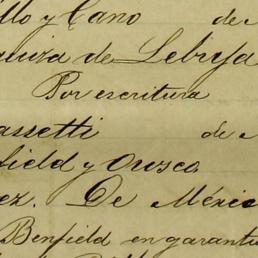 llo y Cano de
de Lebrija
Por escritura
assetti de
field y Orozco
ez. De Méxic
Benfield en garantí